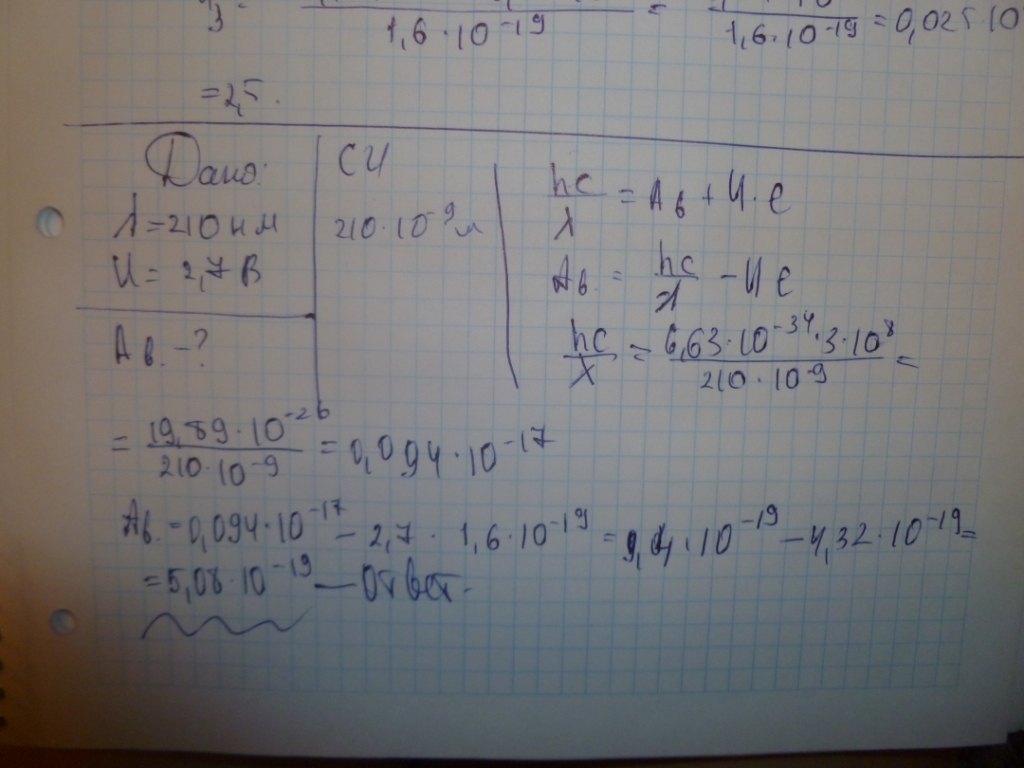 1,6·10⁻¹⁹ = 1,6·10⁻¹⁹ = 0,025·10
= 2,5.
Дано:
λ = 210 нм
U = 2,7 В
Ав. - ?
СИ
210·10⁻⁹ м
hc/λ = Ав + U·e
Ав. = hc/λ - Ue
hc/λ = 6,63·10⁻³⁴·3·10⁸/210·10⁻⁹ =
= 19,89·10⁻²⁶/210·10⁻⁹ = 0,094·10⁻¹⁷
Ав. = 0,094·10⁻¹⁷ - 2,7·1,6·10⁻¹⁹ = 9,4·10⁻¹⁹ - 4,32·10⁻¹⁹ =
= 5,08·10⁻¹⁹ — Ответ.